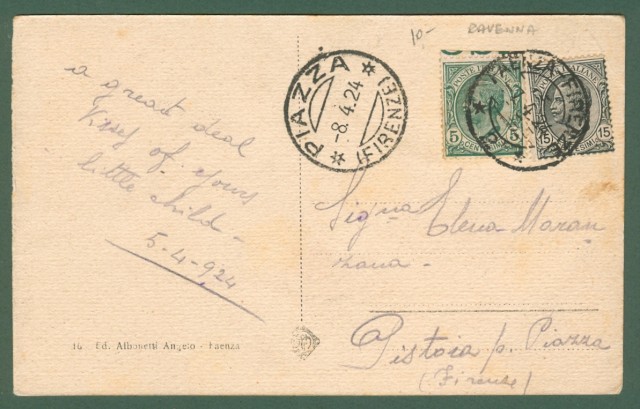 10.-
RAVENNA
a great deal
Kiss of yours
little child -
5-4-924
PIAZZA
-8.4.24
(FIRENZE)
POSTE ITALIANE
5
5
CENTESIMI
15
15
FAENZA-FIRENZE
Sig.na Elena Maran
zana.
Pistoia p. Piazza
(Firenze)
16 Ed. Albonetti Angelo - Faenza